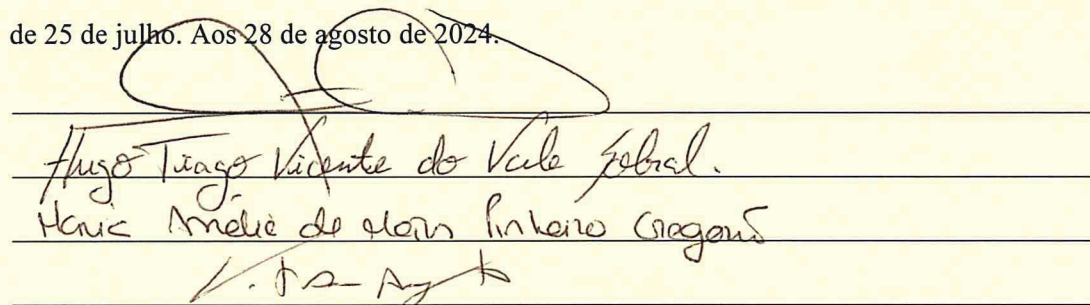 de 25 de julho. Aos 28 de agosto de 2024.
Hugo Tiago Vicente do Vale Sobral.
Maria Amélia de Pinheiro